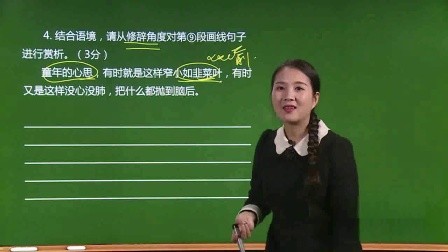 4. 结合语境，请从修辞角度对第⑨段画线句子
进行赏析。（3分）
童年的心思，有时就是这样窄小如韭菜叶，有时
又是这样没心没肺，把什么都抛到脑后。